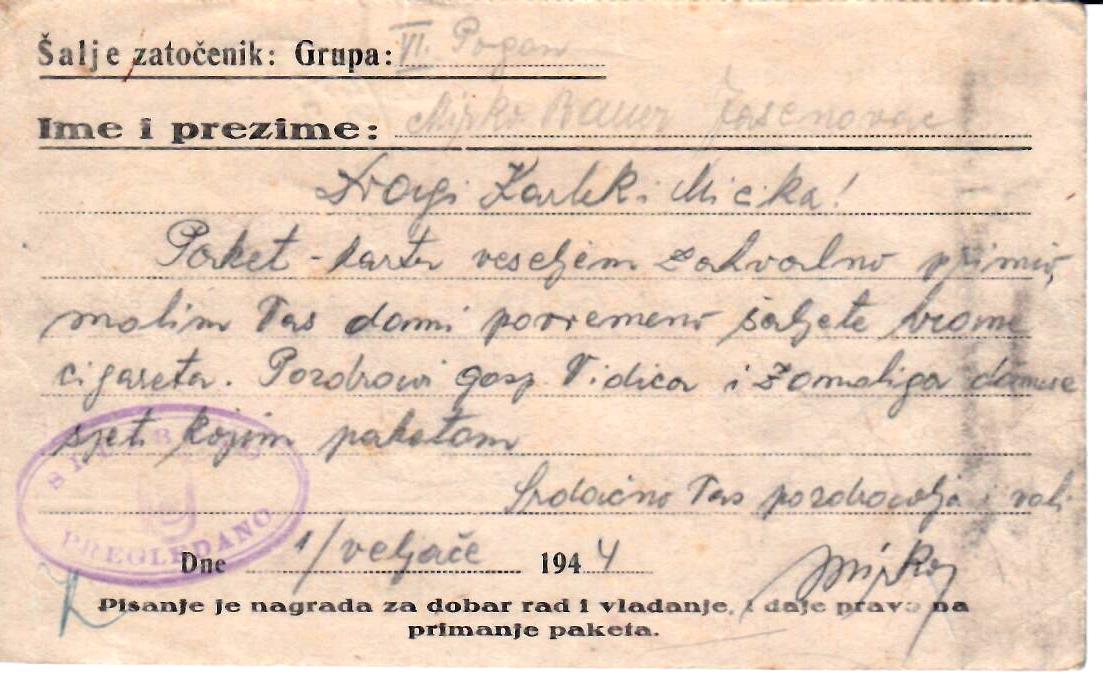 Šalje zatočenik: Grupa: VI. Pogon
Ime i prezime: Mirko Bauer Jasenovac
Dragi Karlek i Micika!
Paket - karta veseljem zahvalno primio,
molim Vas da mi povremeno šaljete
cigareta. Pozdravi gosp. Vidica i zamoli ga da me se
sjeti kojim paketom
Srdačno Vas pozdravlja i voli
SLUŽBENO
PREGLEDANO
Dne 1/veljače 1944
Mirko
Pisanje je nagrada za dobar rad i vladanje, i daje pravo na
primanje paketa.